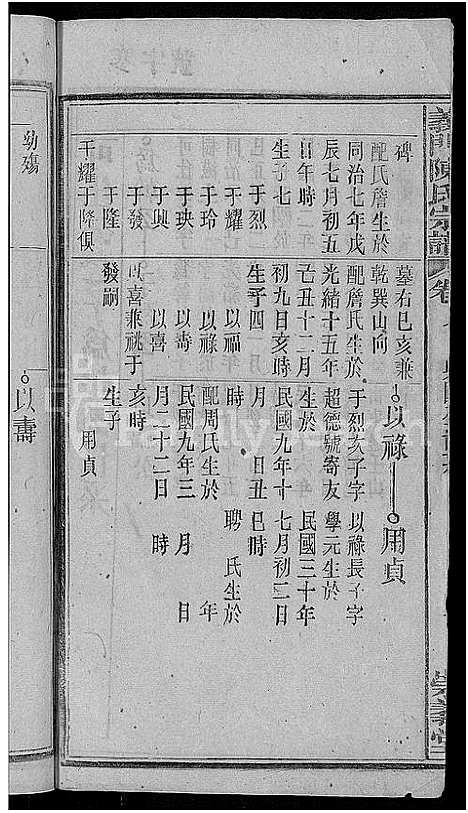 義門陳氏宗譜
崇義堂
碑
配氏詹生於
同治七年戊
辰七月初五
日午時二年
生子七
于烈
于耀
于玲
于玦
于興
于發
于隆
于耀于隆俱
幼殤
墓右巳亥兼
乾巽山向
配詹氏生於
光緒十五年
己丑十二月
初九日亥時
生子四
以福
以祿
以壽
以喜
以喜兼祧于
發嗣
以祿
于烈次子字
超德號寄友
生於
民國九年十
月 日丑
時
配周氏生於
民國九年三
月二十二日
亥時
生子
用貞
用貞
以祿長子字
學元生於
民國三十年
七月初二日
巳時
聘 氏生於
年
月 日
時
以壽